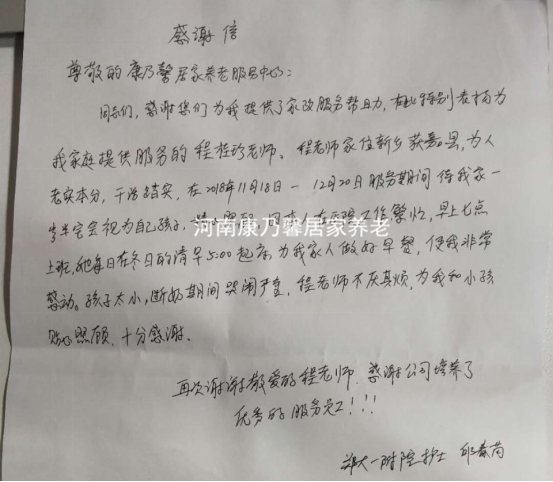 感谢信
尊敬的康乃馨居家养老服务中心:
同志们，感谢您们为我提供了家政服务帮助，在此特别表扬为
我家庭提供服务的程桂珍老师。程老师家住新乡获嘉县，为人
老实本分，干活踏实，在2018年11月18日一12月20日服务期间待我家一
岁半宝宝视为自己孩子，工作繁忙，早上七点
上班，她每日在冬日的清早5:00起床为我家人做好早餐，使我非常
感动。孩子太小，断奶期间哭闹严重，程老师不厌其烦，为我和小孩
贴心照顾，十分感谢。
河南康乃馨居家养老
再次谢谢敬爱的程老师，感谢公司培养了
优秀的服务员工!!!
郑大一附院护士